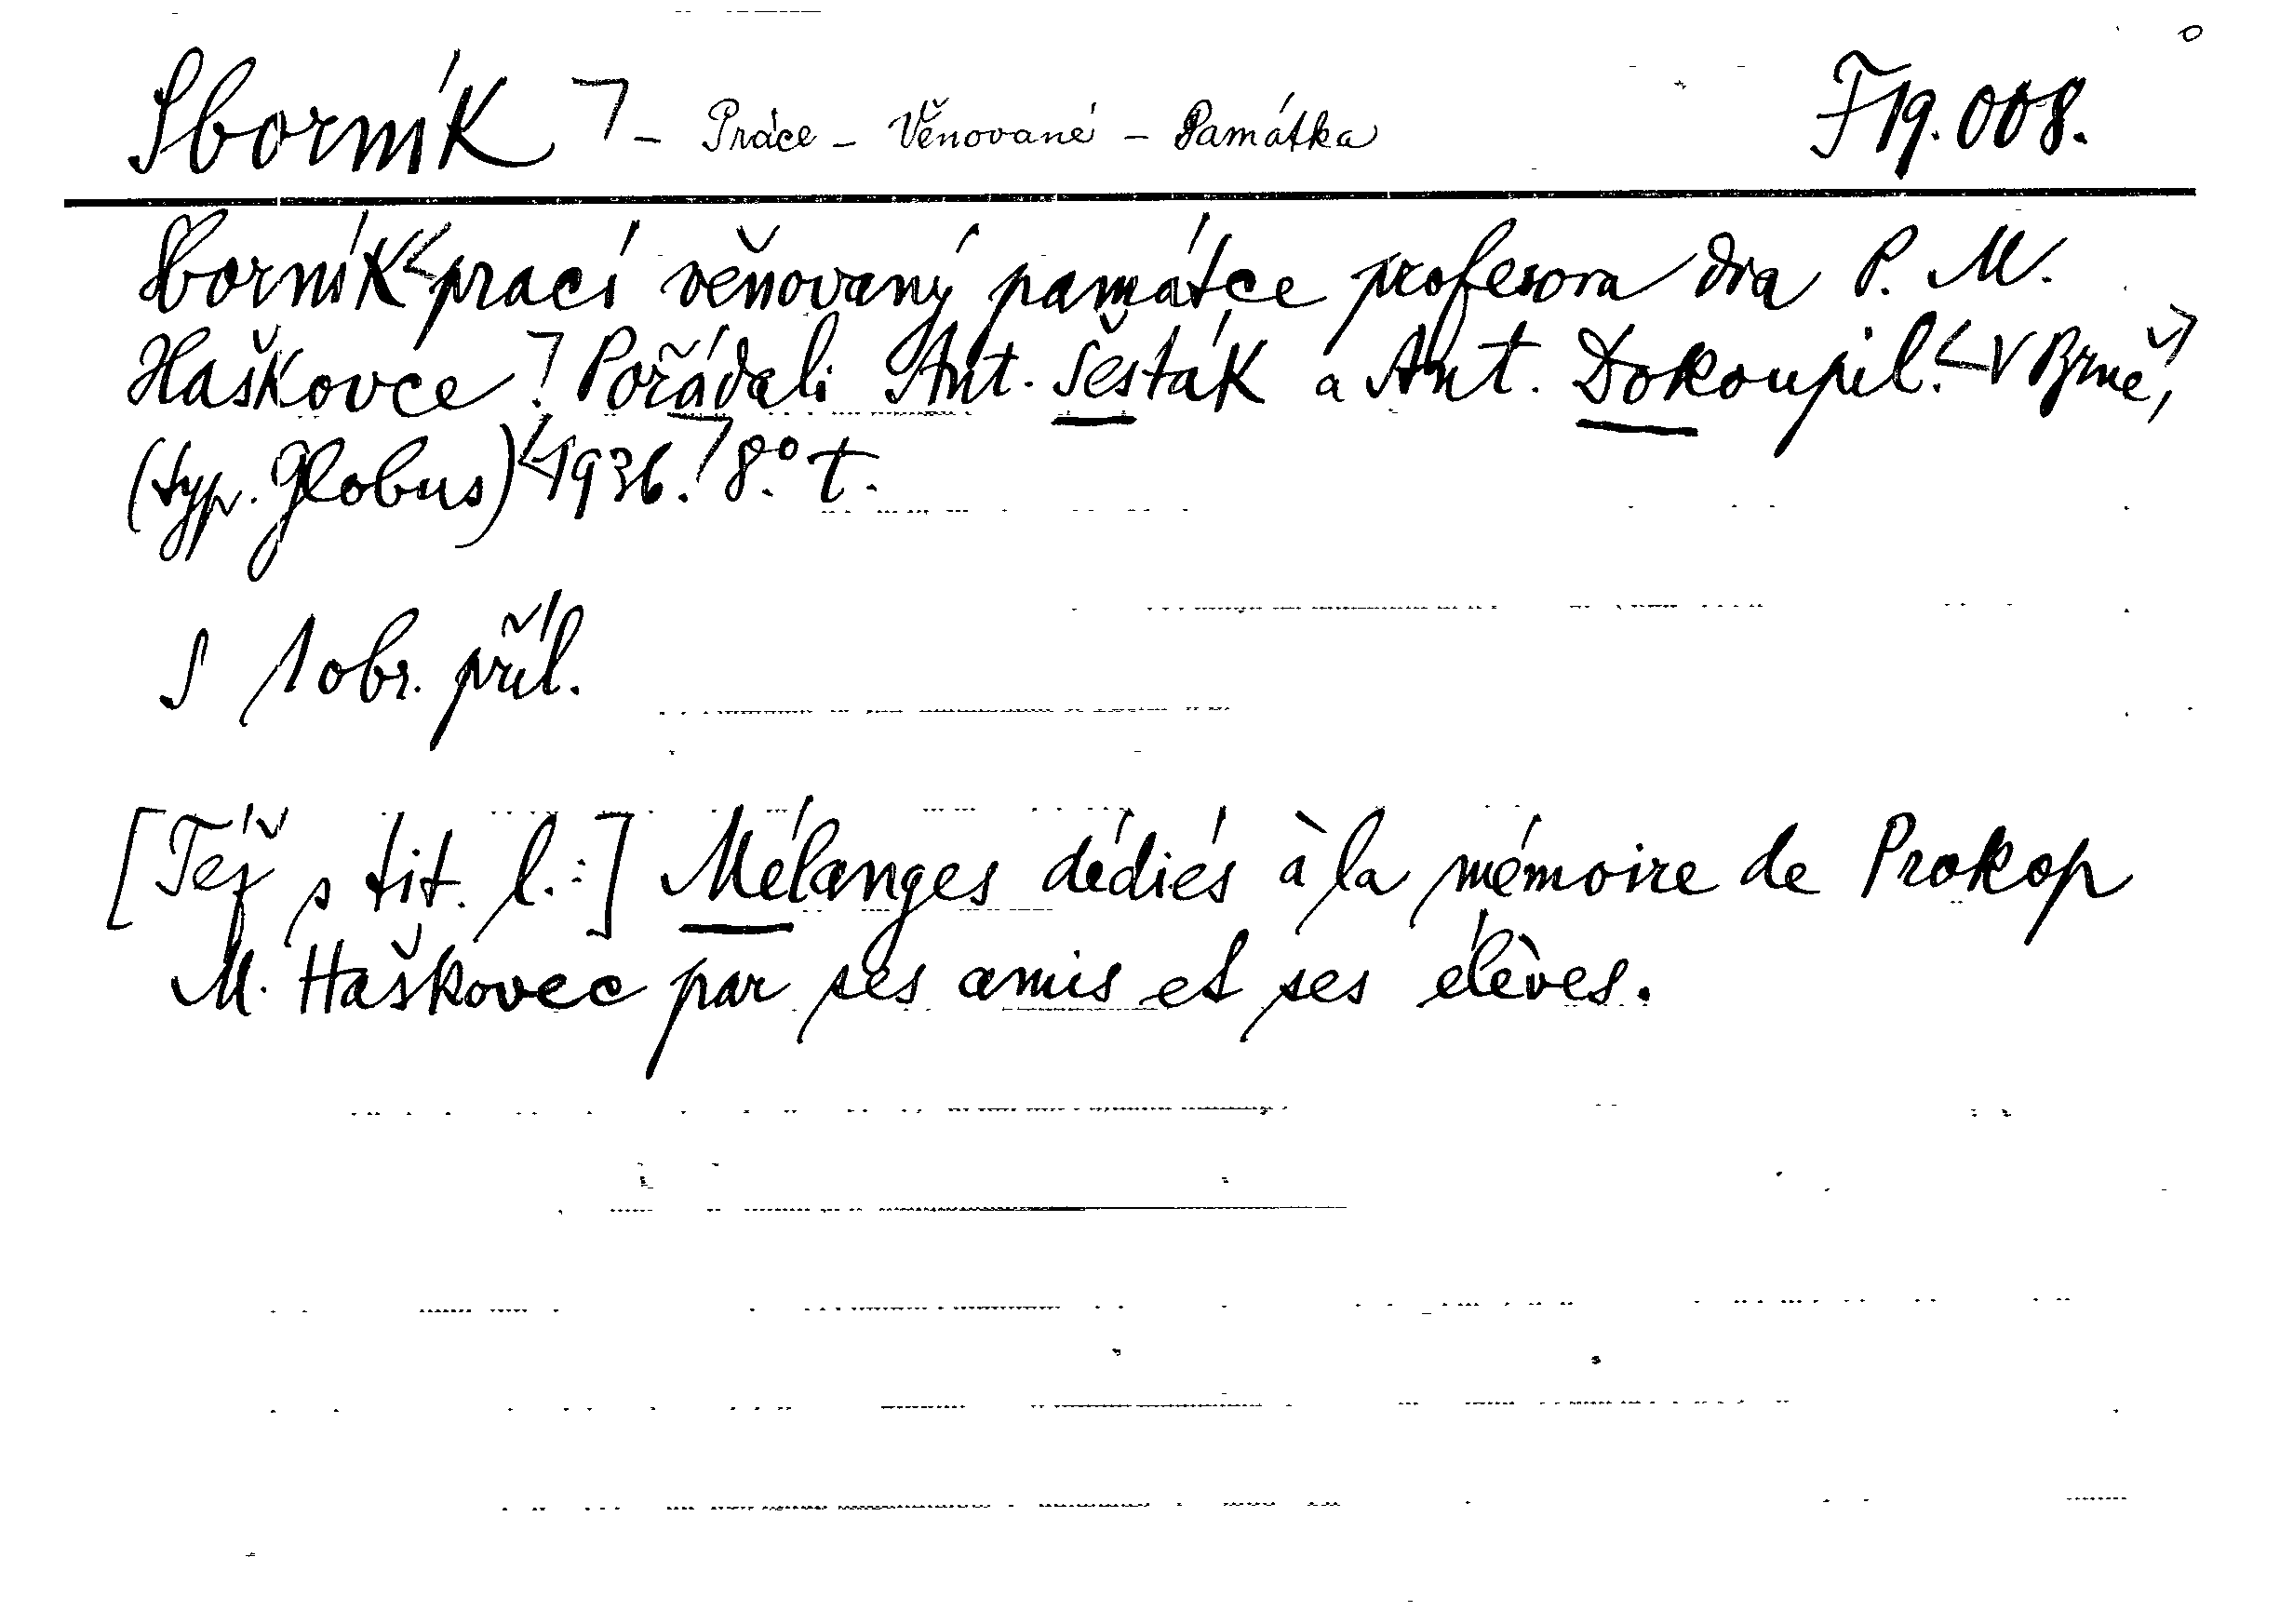 Sborník – Práce – Věnované – Památka F 19.008.
Sborník prací věňovaný památce profesora dra P. M.
Haškovce. Pořádali Ant. Šesták a Ant. Dokoupil. V Brně,
(typ. Globus) 1936. 8°. t.
S 1 obr. příl.
[Též s tit. l.:] Mélanges dédiés à la mémoire de Prokop
M. Haškovec par ses amis et ses élèves.